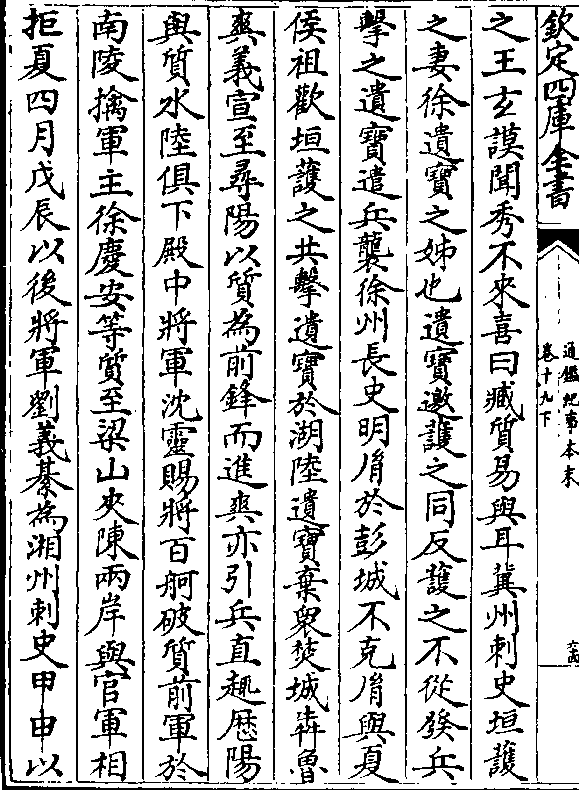 欽定四庫全書
通鑑紀事本末
卷十九下
之王玄謨聞秀不來喜曰臧質易與耳冀州刺史垣護
之妻徐遺寶之姊也遺寶邀護之同反護之不從發兵
擊之遺寶遣兵襲徐州長史明胤於彭城不克胤與夏
侯祖歡垣護之共擊遺寶於湖陸遺寶棄衆焚城奔魯
爽義宣至尋陽以質為前鋒而進爽亦引兵直趣歷陽
與質水陸俱下殿中將軍沈靈賜將百舸破質前軍於
南陵擒軍主徐慶安等質至梁山夾陳兩岸與官軍相
拒夏四月戊辰以後將軍劉義綦為湘州刺史甲申以